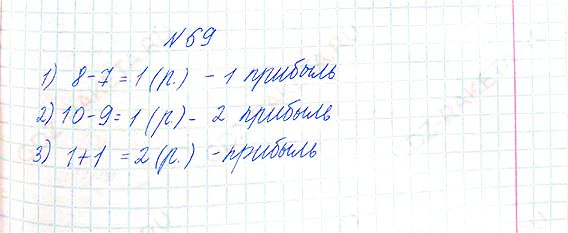 №69
1) 8-7=1(р.) - 1 прибыль
2) 10-9=1(р.) - 2 прибыль
3) 1+1 =2(р.) - прибыль